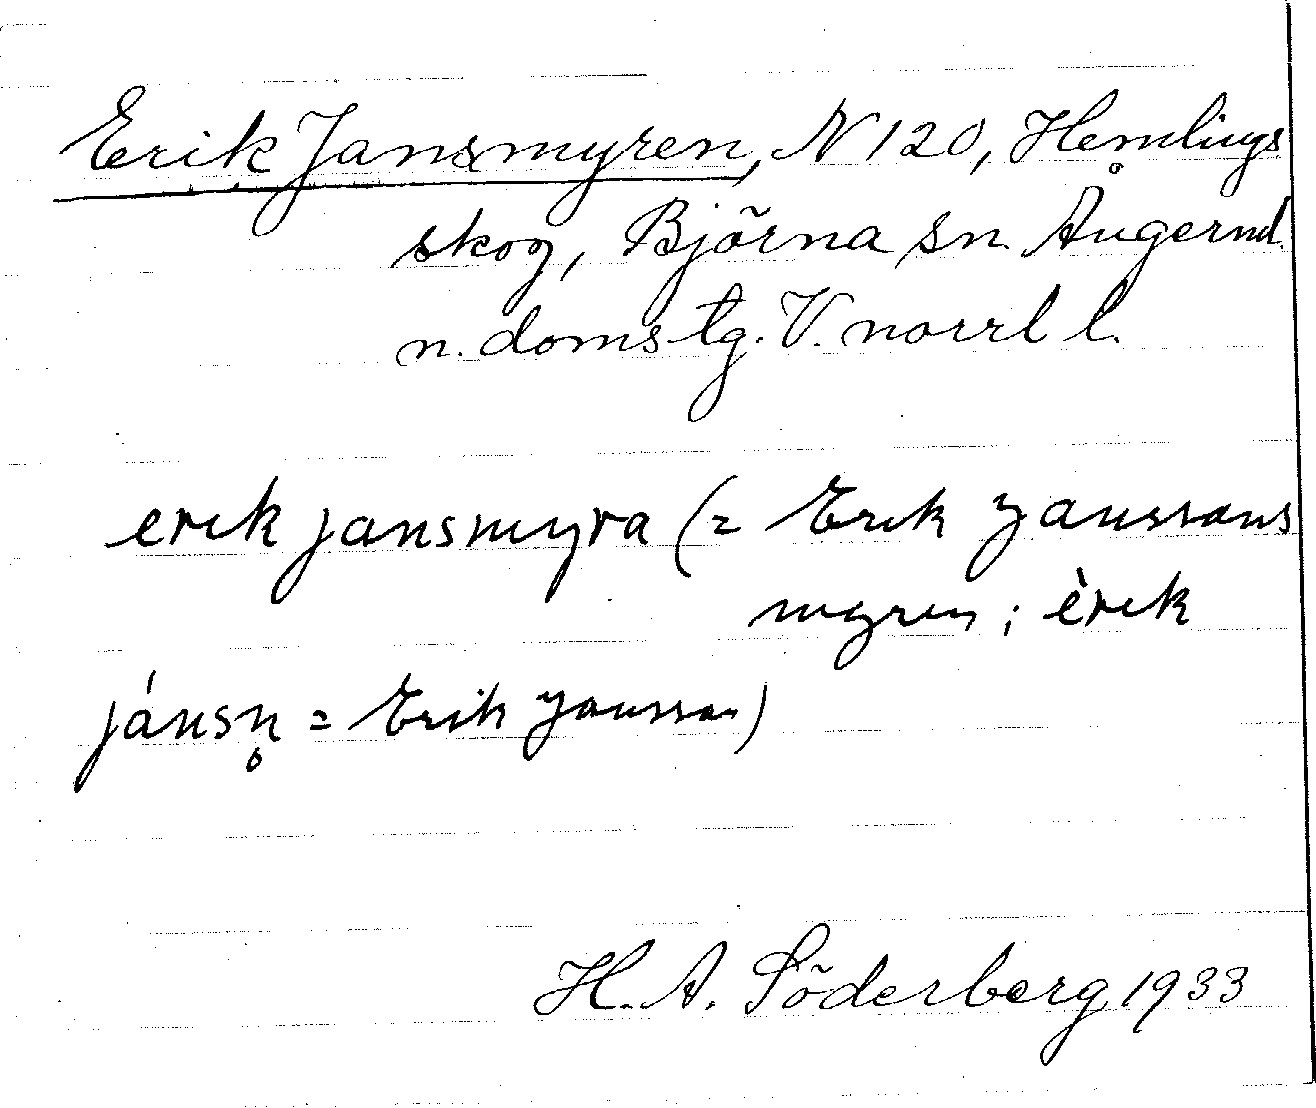 Erik Jansmyren, N 120, Hemlings
skog, Björna sn. Ångerml.
n. doms tg. V. norrl l.
erik jansmyra (= Erik Janssons
myren; èrik
jánsn̥ = Erik Jansson)
H. A. Söderberg 1933